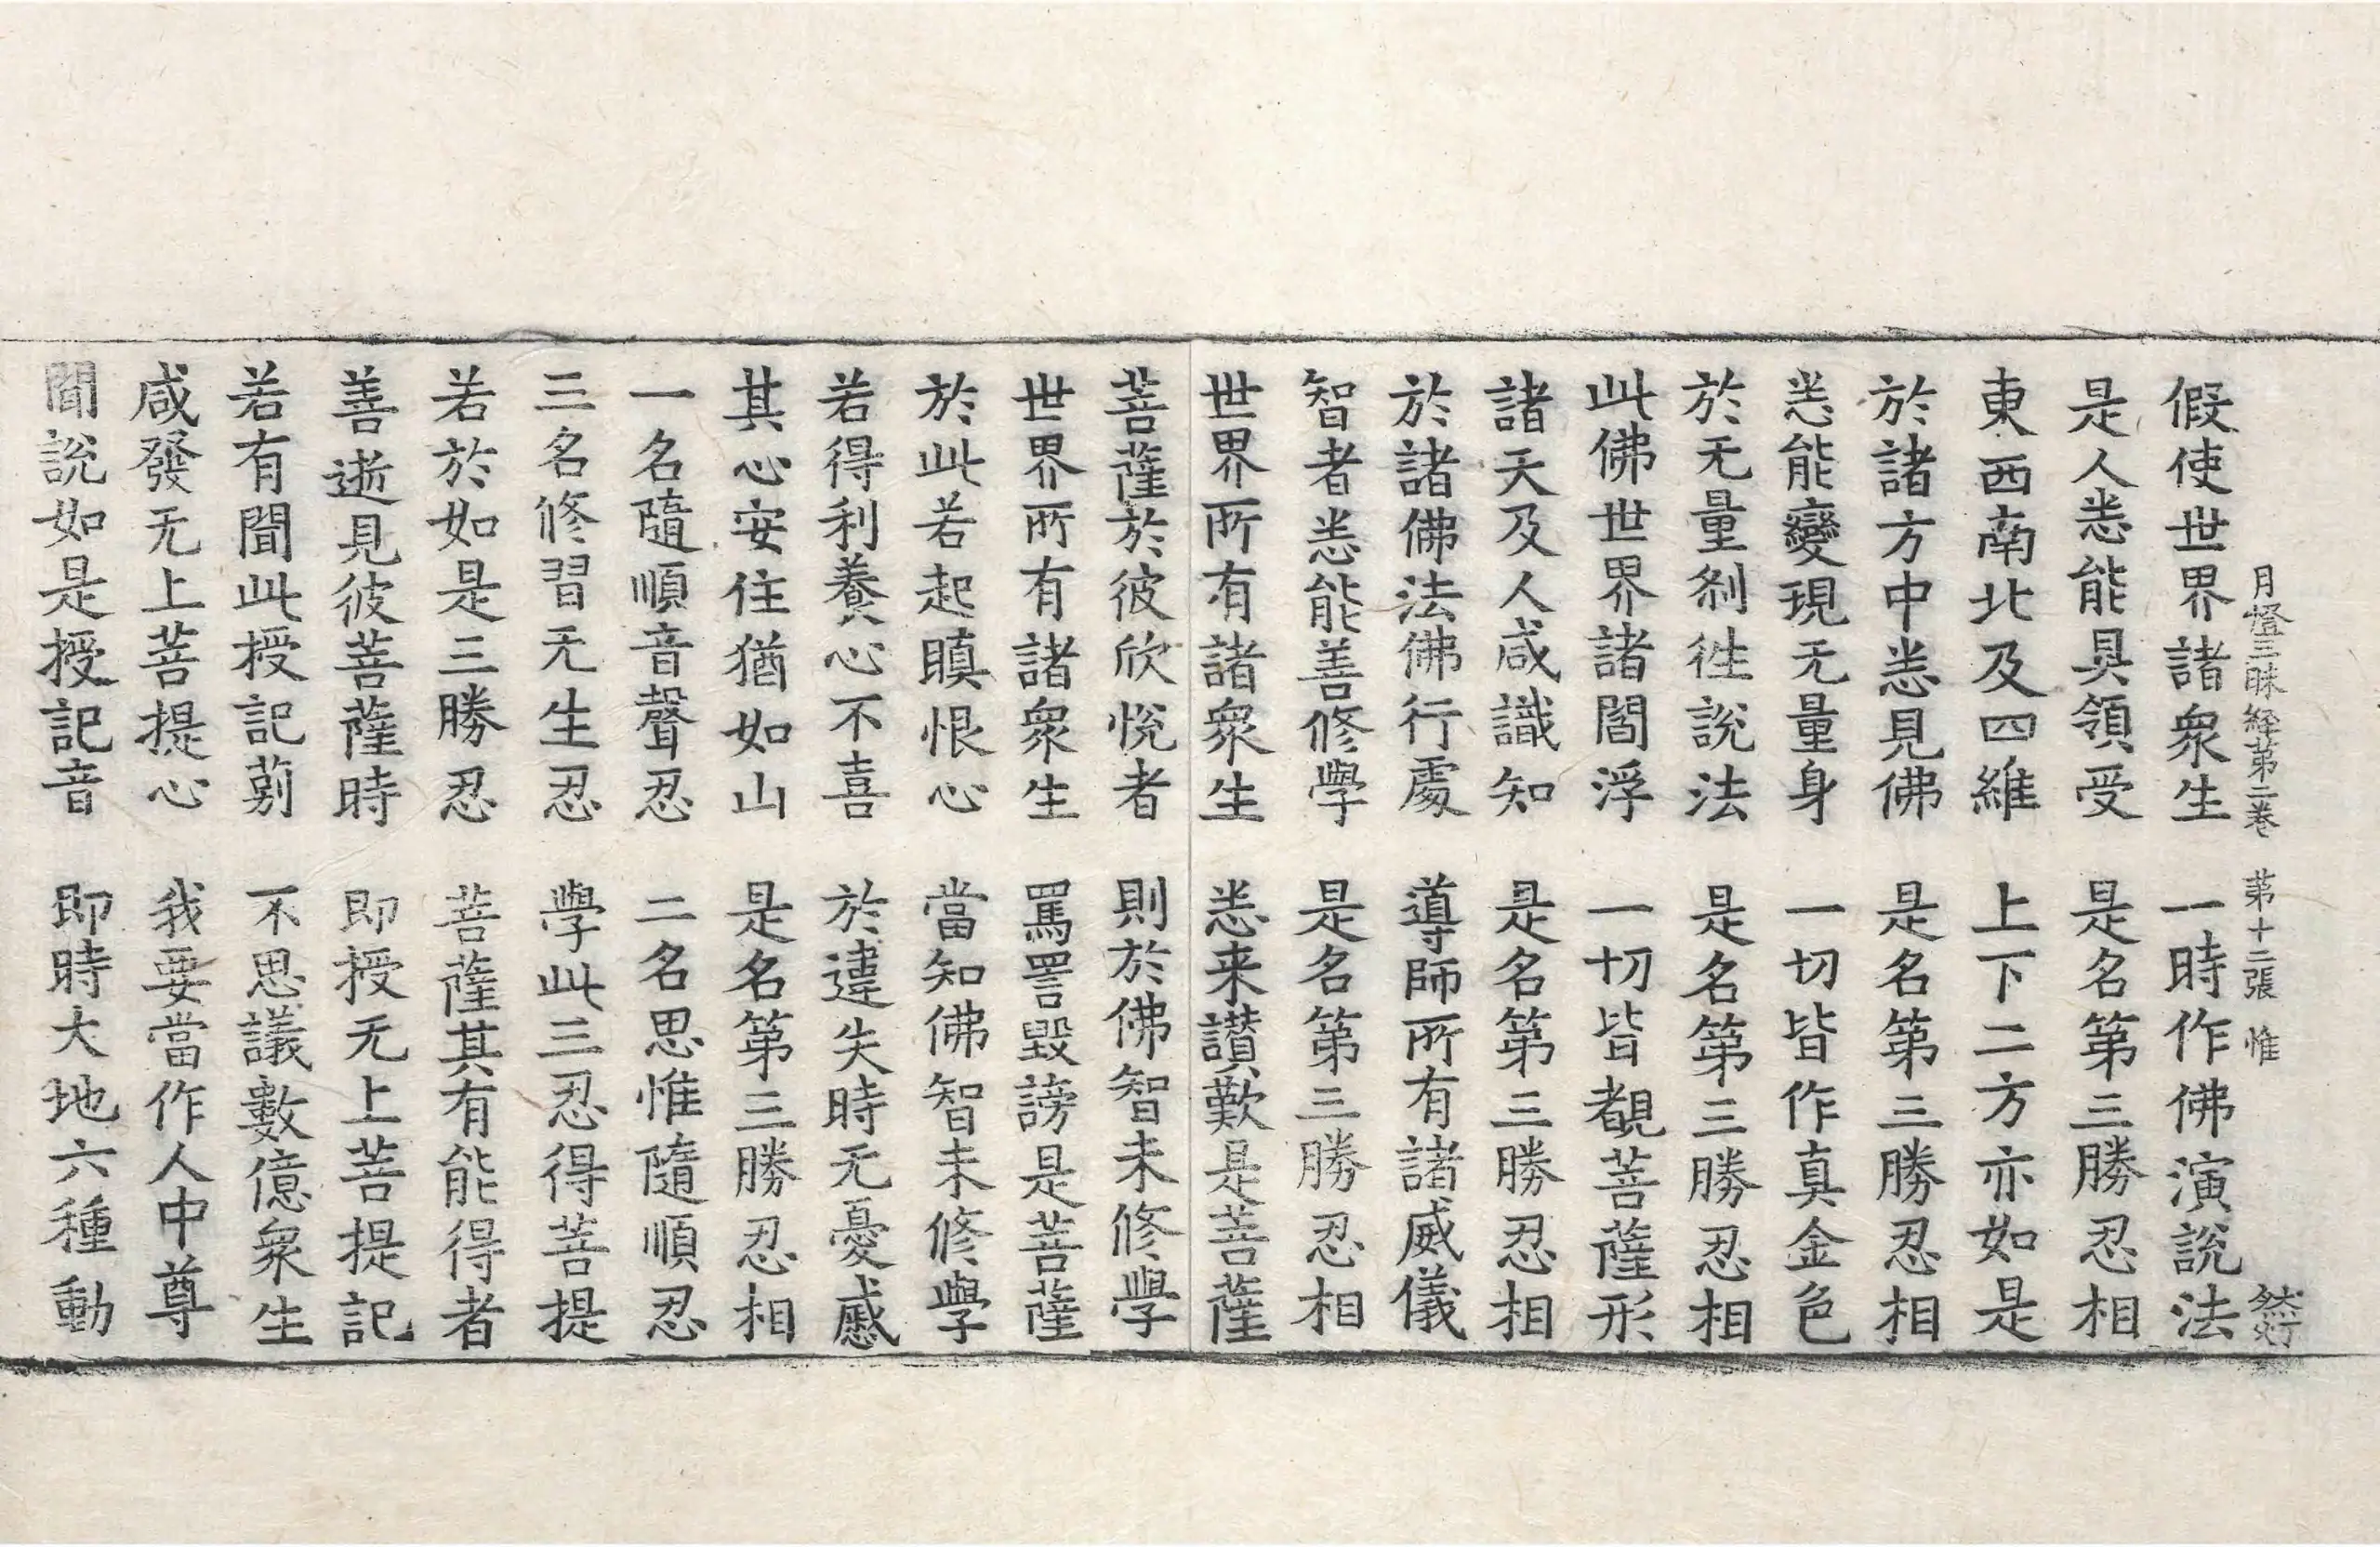 月燈三昧経苐二巻 苐十二張 惟
假使世界諸衆生 一時作佛演說法
是人悉能具領受 是名第三勝忍相
東西南北及四維 上下二方亦如是
於諸方中悉見佛 是名第三勝忍相
悉能變現无量身 一切皆作真金色
於无量刹徃說法 是名第三勝忍相
此佛世界諸閻浮 一切皆覩菩薩形
諸天及人咸識知 是名第三勝忍相
於諸佛法佛行處 導師所有諸威儀
智者悉能善修學 是名第三勝忍相
世界所有諸衆生 悉来讃歎是菩薩
菩薩於彼欣恱者 則於佛智未修學
世界所有諸衆生 罵詈毀謗是菩薩
於此若起瞋恨心 當知佛智未修學
若得利養心不喜 於違失時无憂慼
其心安住猶如山 是名第三勝忍相
一名隨順音聲忍 二名思惟隨順忍
三名修習无生忍 學此三忍得菩提
若於如是三勝忍 菩薩其有能得者
善逝見彼菩薩時 即授无上菩提記
若有聞此授記莂 不思議數億衆生
咸發无上菩提心 我要當作人中尊
聞說如是授記音 即時大地六種動